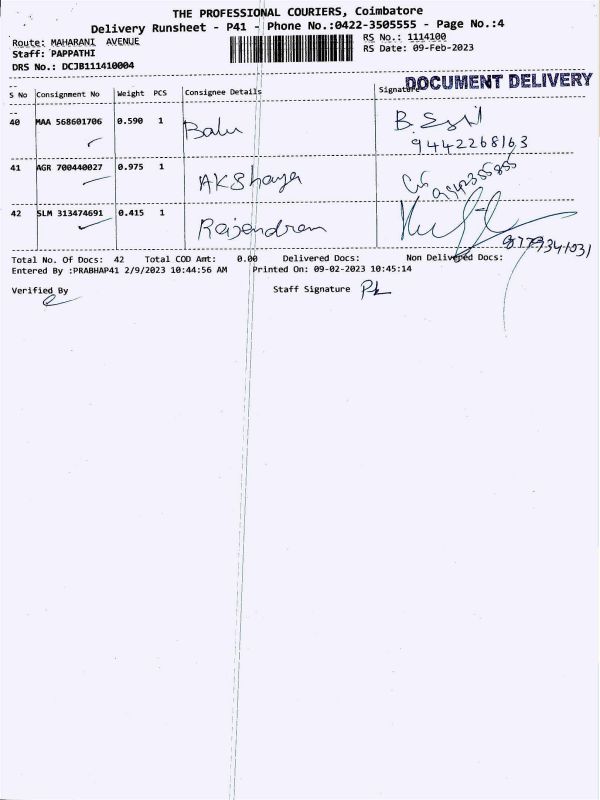 THE PROFESSIONAL COURIERS, Coimbatore
Delivery Runsheet - P41 - Phone No.:0422-3505555 - Page No.:4
Route: MAHARANI AVENUE
Staff: PAPPATHI
DRS No.: DCJB111410004
RS No.: 1114100
RS Date: 09-Feb-2023
DOCUMENT DELIVERY
S No Consignment No Weight PCS Consignee Details Signature
40 MAA 568601706 0.590 1 Balu B.
9442268163
41 AGR 700440027 0.975 1 AKShaya
42 SLM 313474691 0.415 1 Rajendran
Total No. Of Docs: 42 Total COD Amt: 0.00 Delivered Docs: Non Delivered Docs:
Entered By :PRABHAP41 2/9/2023 10:44:56 AM Printed On: 09-02-2023 10:45:14
Verified By Staff Signature